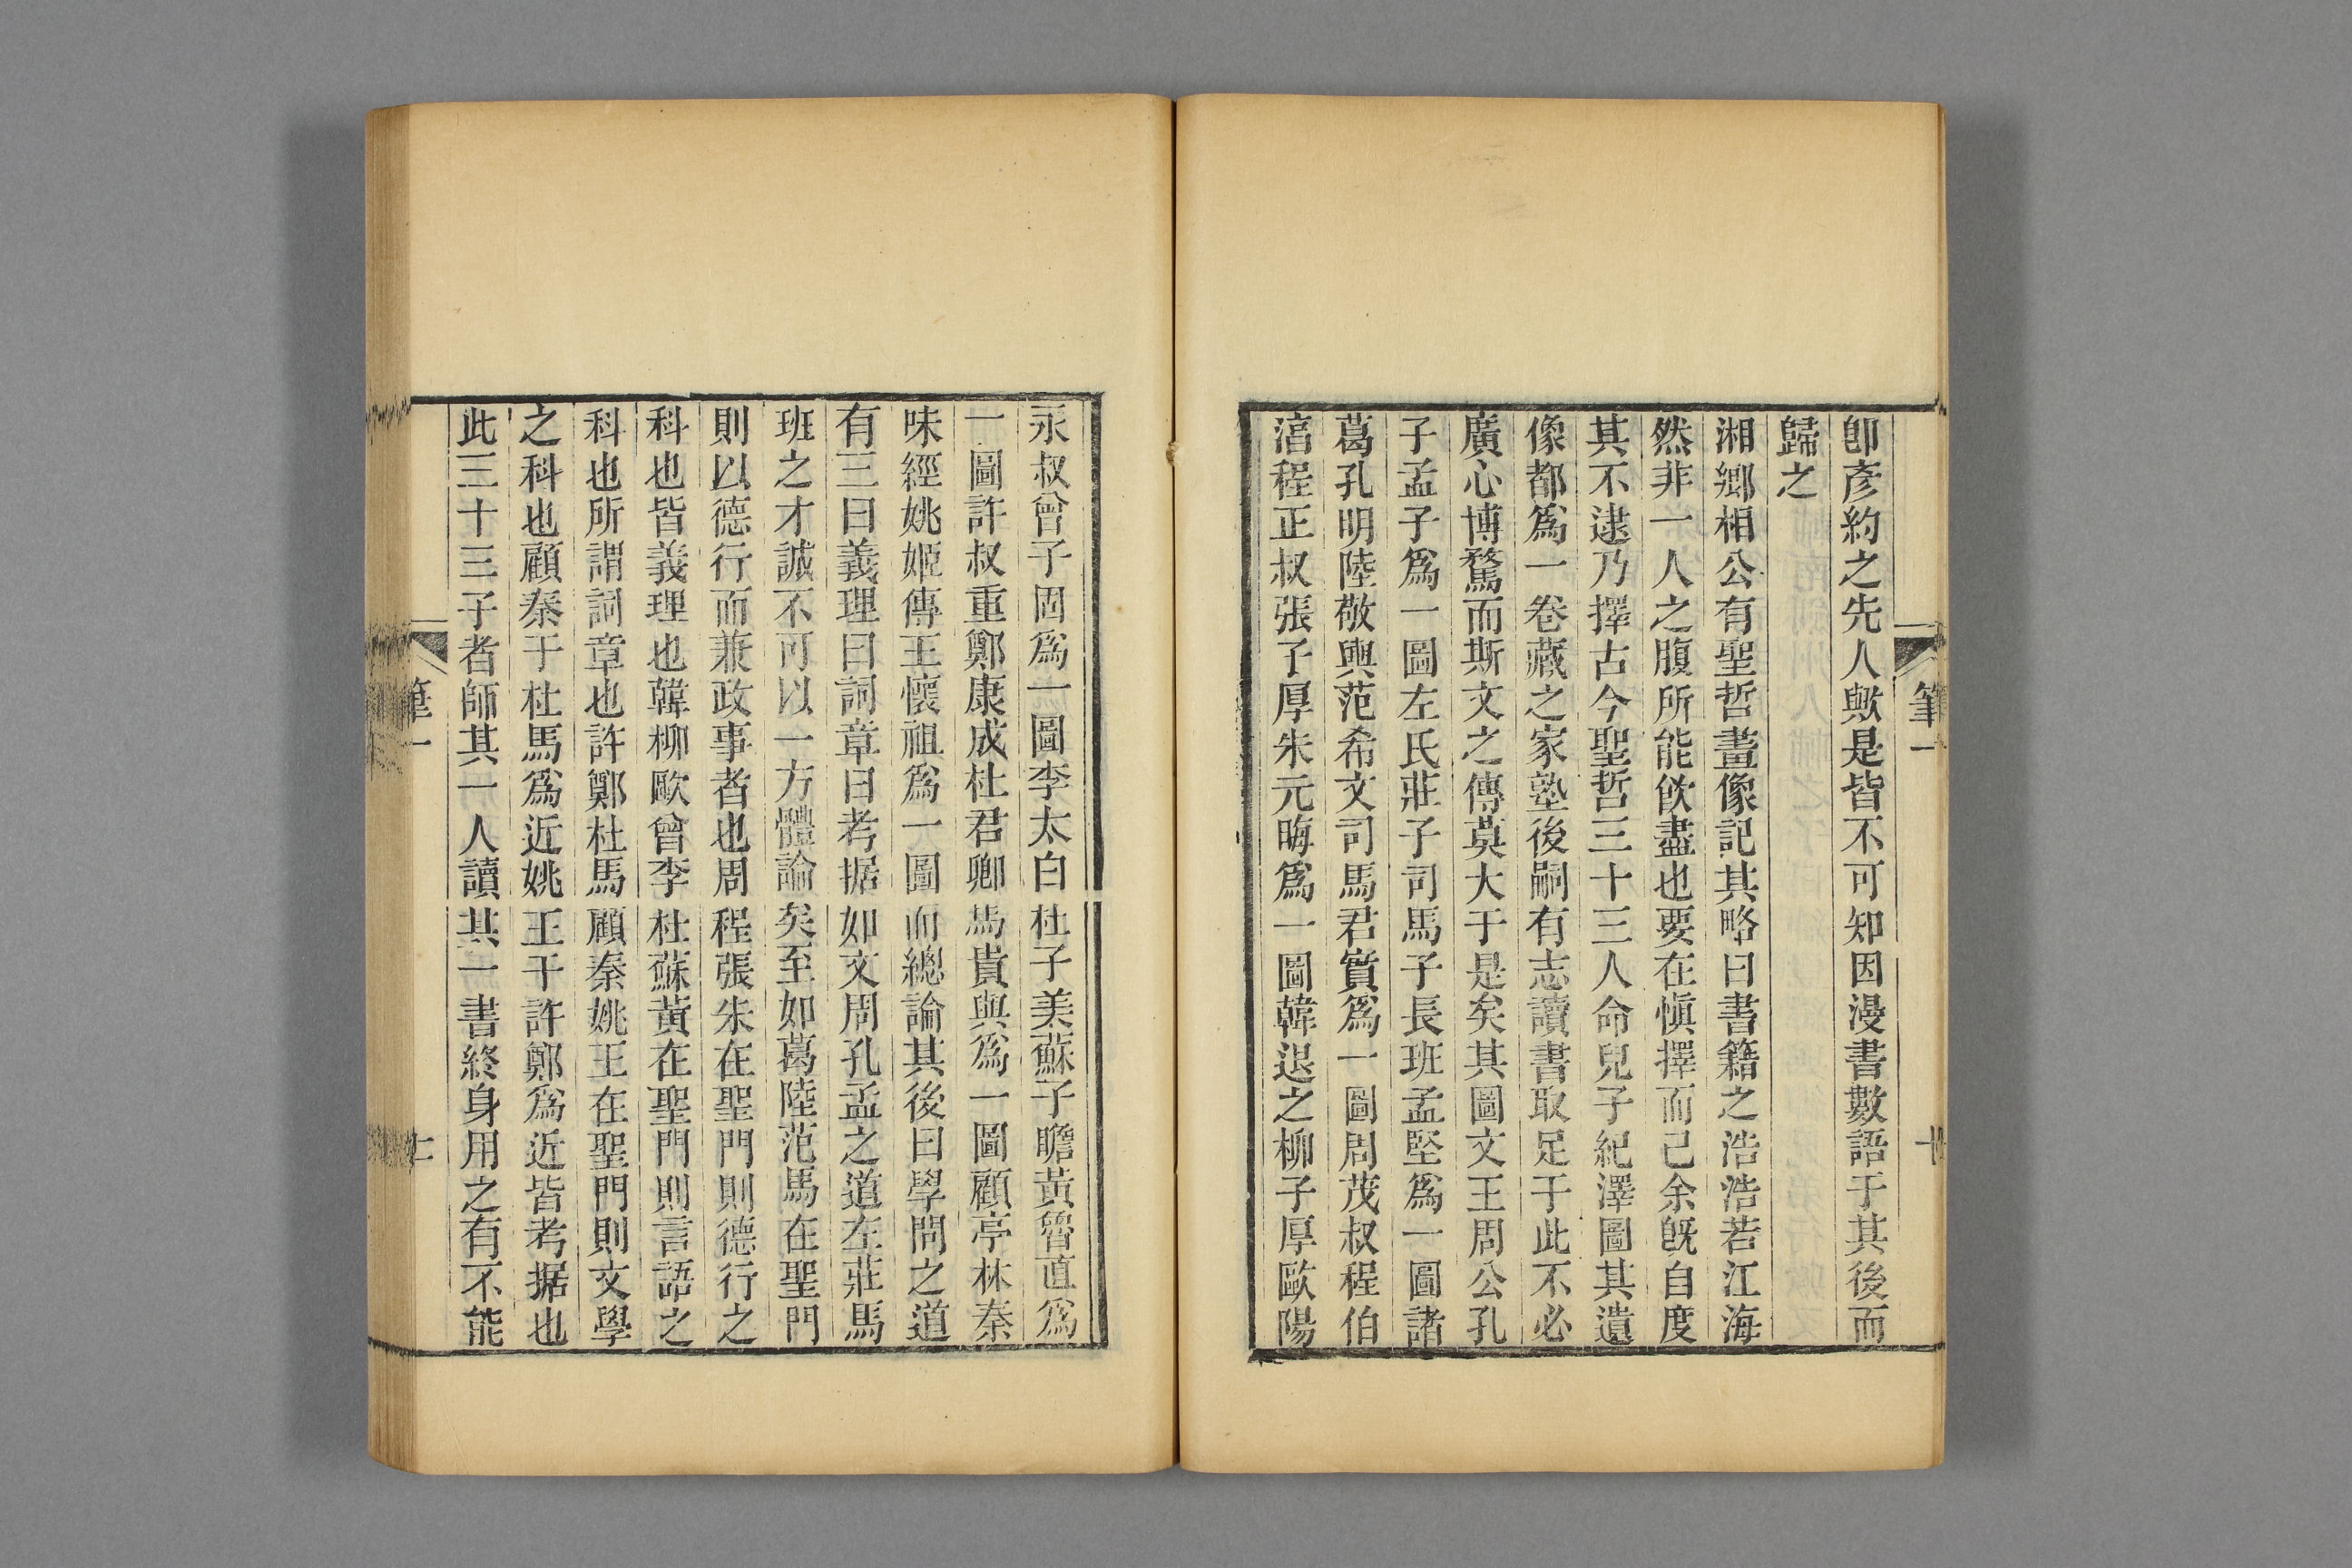 筆一
十
卽彥約之先人歟是皆不可知因漫書數語于其後而
歸之
湘鄉相公有聖哲畫像記其略曰書籍之浩浩若江海
然非一人之腹所能飲盡也要在愼擇而己余旣自度
其不逮乃擇古今聖哲三十三人命兒子紀澤圖其遺
像都爲一卷藏之家塾後嗣有志讀書取足于此不必
廣心博騖而斯文之傳莫大于是矣其圖文王周公孔
子孟子爲一圖左氏莊子司馬子長班孟堅爲一圖諸
葛孔明陸敬輿范希文司馬君實爲一圖周茂叔程伯
湻程正叔張子厚朱元晦爲一圖韓退之柳子厚歐陽
永叔曾子固爲一圖李太白杜子美蘇子瞻黃魯直爲
一圖許叔重鄭康成杜君卿馬貴與爲一圖顧亭林秦
味經姚姬傳王懷祖爲一圖而總論其後曰學問之道
有三曰義理曰詞章曰考据如文周孔孟之道左莊馬
班之才誠不可以一方體論矣至如葛陸范馬在聖門
則以德行而兼政事者也周程張朱在聖門則德行之
科也皆義理也韓柳歐曾李杜蘇黃在聖門則言語之
科也所謂詞章也許鄭杜馬顧秦姚王在聖門則文學
之科也顧秦于杜馬爲近姚王于許鄭爲近皆考据也
此三十三子者師其一人讀其一書終身用之有不能
筆一